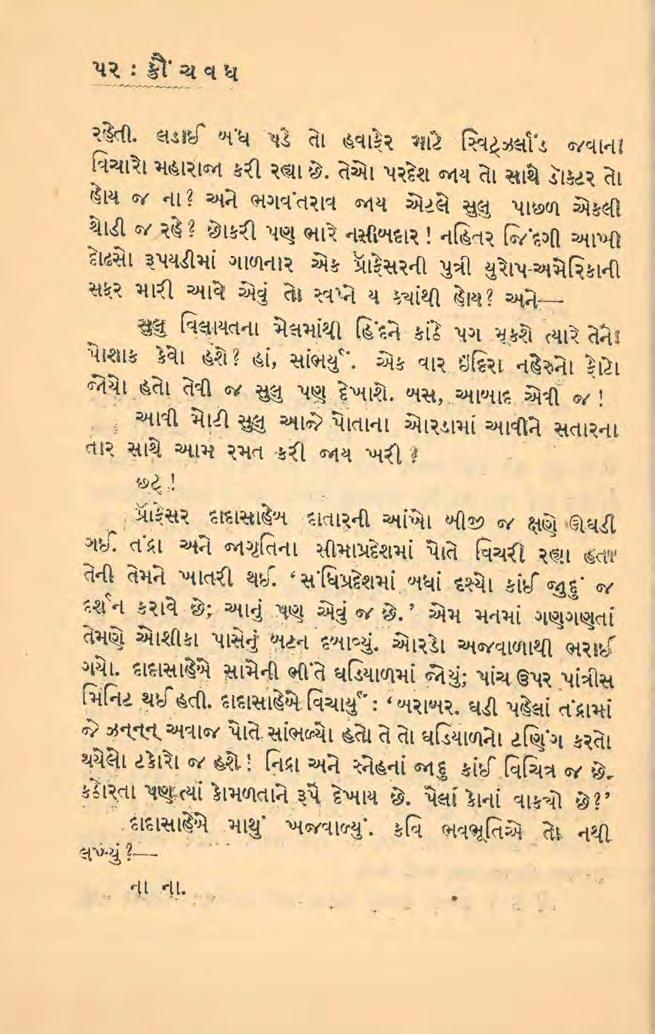 ૫૨ : ક્રૌંચવધ
રહેતી. લડાઈ બંધ પડે તો હવાફેર માટે સ્વિટ્ઝર્લાંડ જવાના
વિચારો મહારાજા કરી રહ્યા છે. તેઓ પરદેશ જાય તો સાથે ડૉક્ટર તો
હોય જ ના? અને ભગવંતરાવ જાય એટલે સુલુ પાછળ એકલી
થોડી જ રહે? છોકરી પણ ભારે નસીબદાર! નહિતર જિંદગી આખી
દોઢસો રૂપયડીમાં ગાળનાર એક પ્રૉફેસરની પુત્રી યુરોપ-અમેરિકાની
સફર મારી આવે એવું તો સ્વપ્ને ય ક્યાંથી હોય? અને—
સુલુ વિલાયતના મેલમાંથી હિંદને કાંઠે પગ મૂકશે ત્યારે તેનો
પોશાક કેવો હશે? હાં, સાંભર્યું. એક વાર ઇંદિરા નહેરુનો ફોટો
જોયો હતો તેવી જ સુલુ પણ દેખાશે. બસ, આબાદ એવી જ!
આવી મોટી સુલુ આજે પોતાના ઓરડામાં આવીને સતારના
તાર સાથે આમ રમત કરી જાય ખરી?
છટ્!
પ્રૉફેસર દાદાસાહેબ દાતારની આંખો બીજી જ ક્ષણે ઊઘડી
ગઈ. તંદ્રા અને જાગૃતિના સીમાપ્રદેશમાં પોતે વિચરી રહ્યા હતા
તેની તેમને ખાતરી થઈ. ‘સંધિપ્રદેશમાં બધાં દૃશ્યો કાંઈ જાદું જ
દર્શન કરાવે છે; આનું પણ એવું જ છે.’ એમ મનમાં ગણગણતાં
તેમણે ઓશીકા પાસેનું બટન દબાવ્યું. ઓરડો અજવાળાથી ભરાઈ
ગયો. દાદાસાહેબે સામેની ભીંતે ઘડિયાળમાં જોયું; પાંચ ઉપર પાંત્રીસ
મિનિટ થઈ હતી. દાદાસાહેબે વિચાર્યું: ‘બરાબર. ઘડી પહેલાં તંદ્રામાં
જે ઝન્નન્ન્ અવાજ પોતે સાંભળ્યો હતો તે તો ઘડિયાળનો ટણિંગ કરતો
થયેલો ટકોરો જ હશે! નિદ્રા અને સ્નેહનાં જાદુ કાંઈ વિચિત્ર જ છે.
કઠોરતા પણ ત્યાં કોમળતાને રૂપે દેખાય છે. પેલાં કોનાં વાક્યો છે?’
દાદાસાહેબે માથું ખજવાળ્યું. કવિ ભવભૂતિએ તો નથી
લખ્યું?—
ના ના.